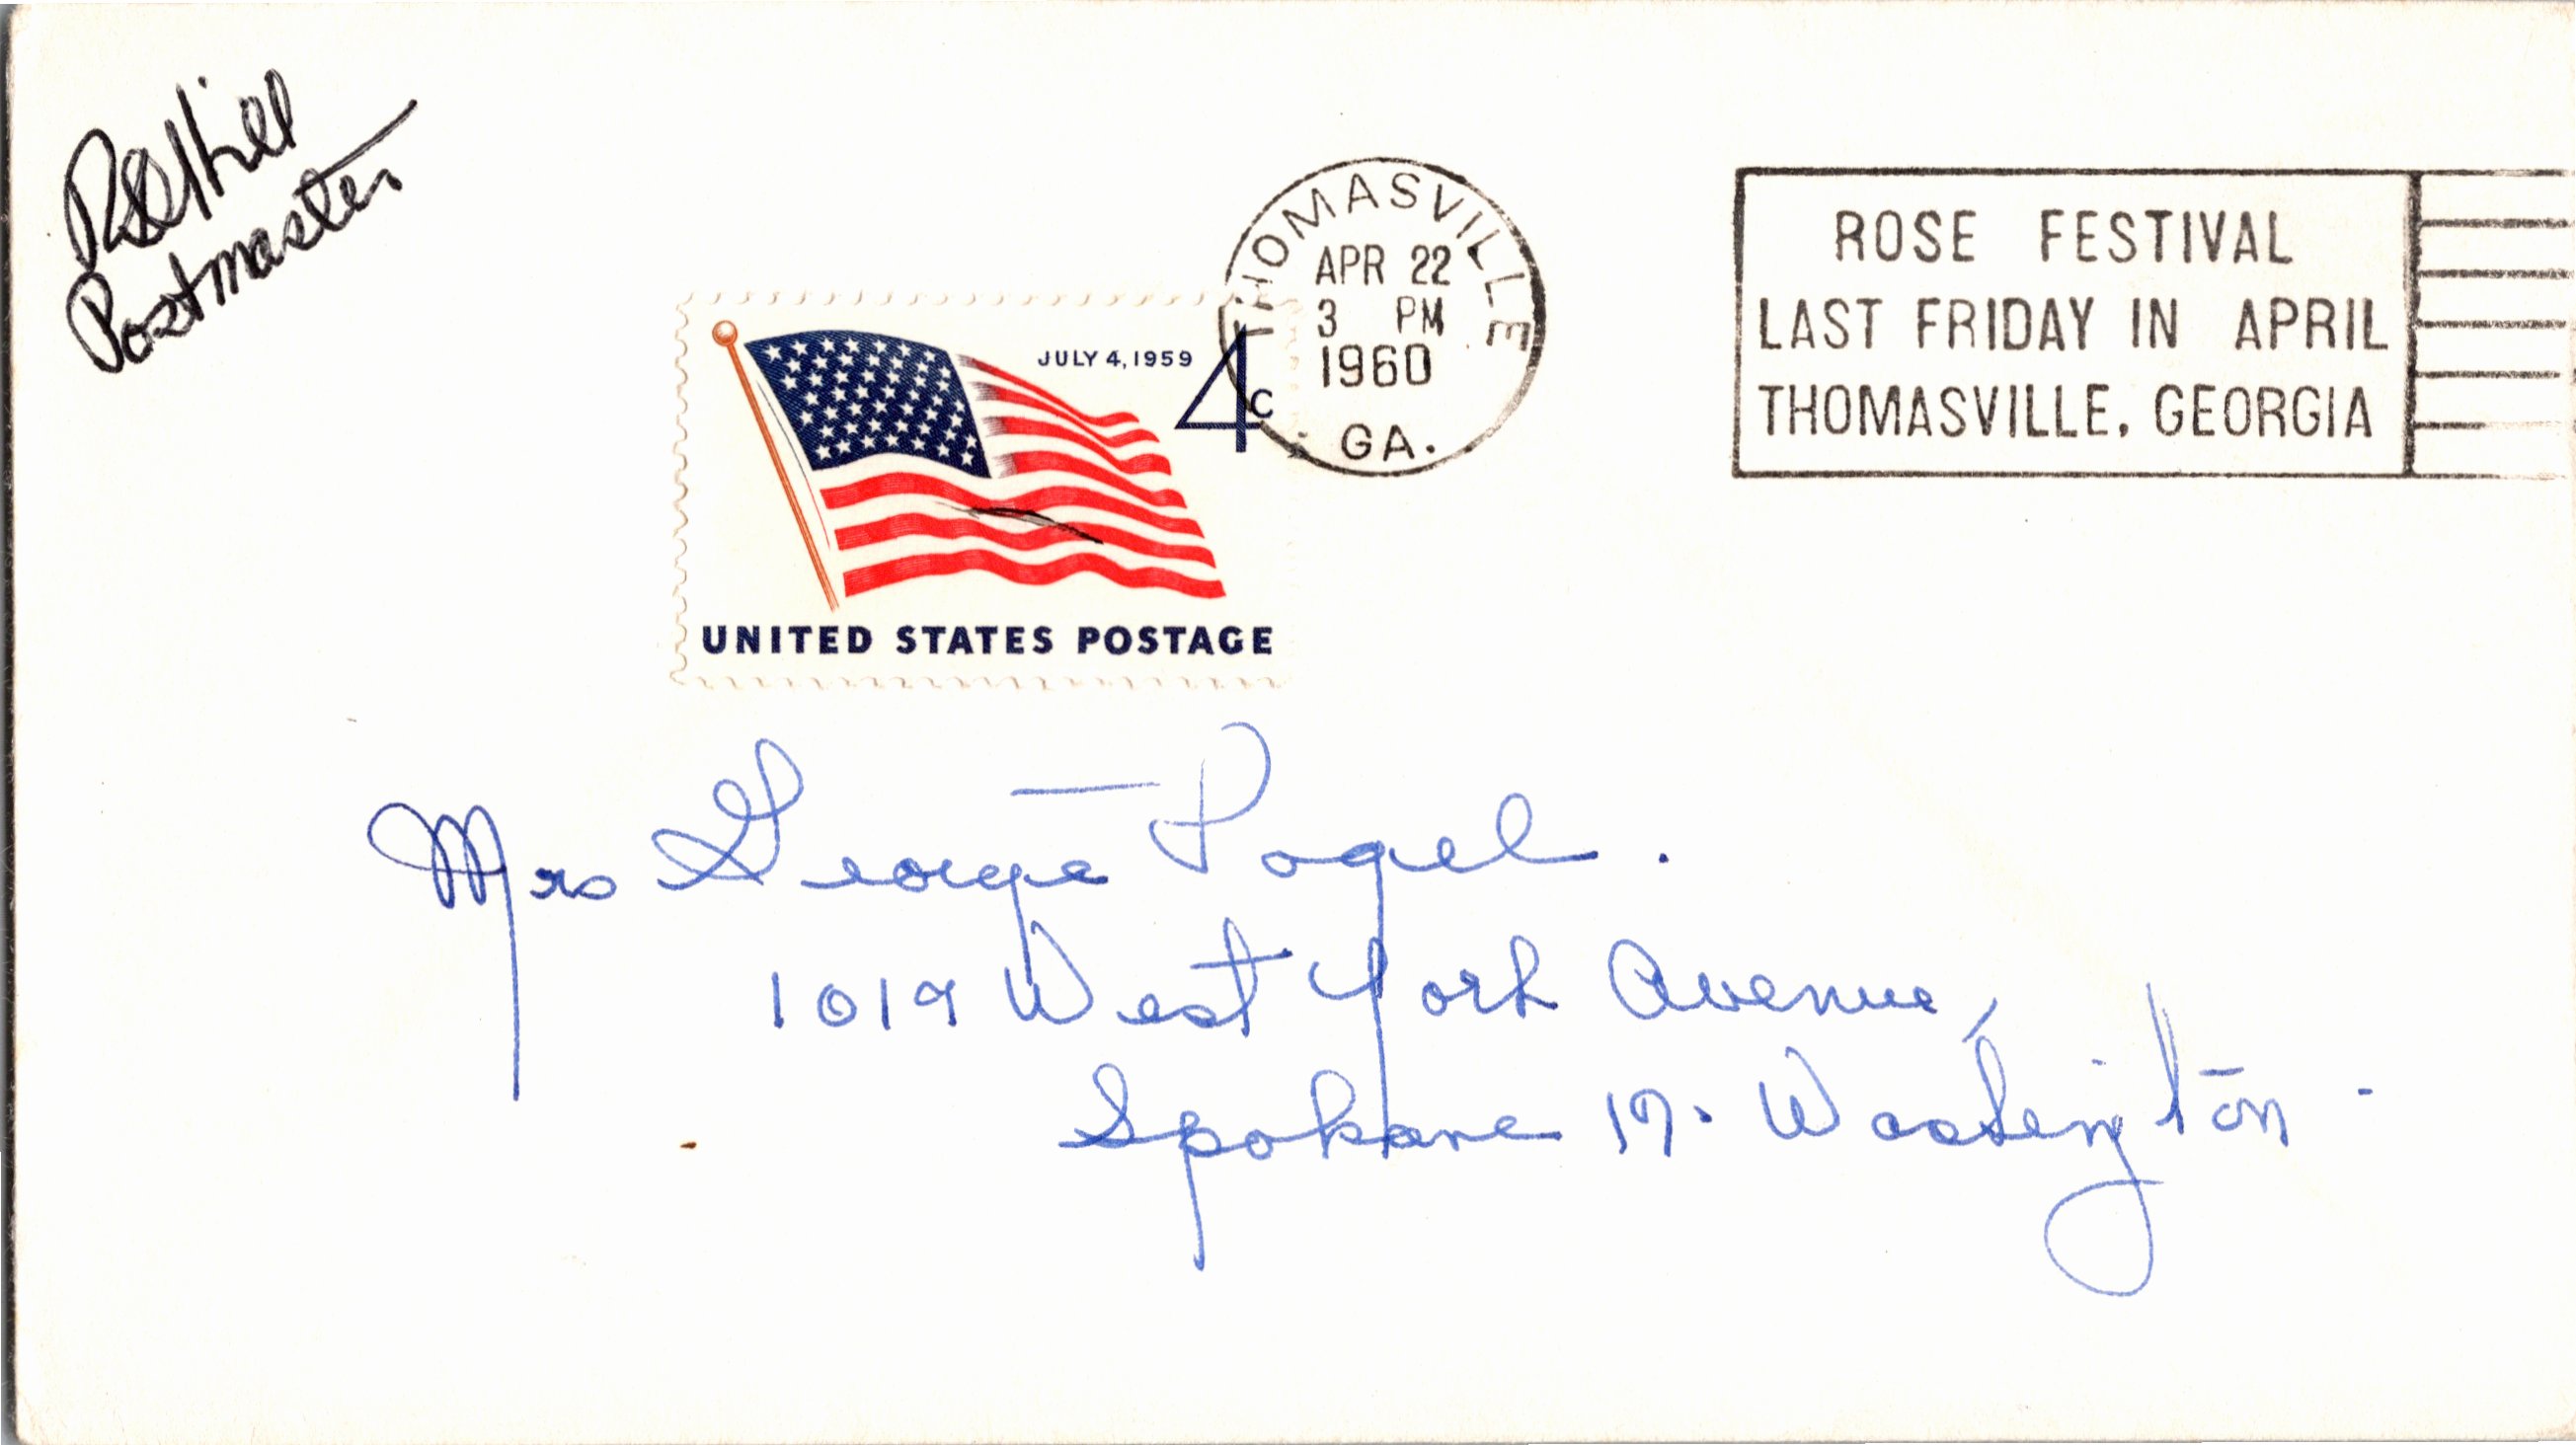 Postmaster
THOMASVILLE
APR 22
3 PM
1960
GA.
ROSE FESTIVAL
LAST FRIDAY IN APRIL
THOMASVILLE, GEORGIA
JULY 4, 1959
4c
UNITED STATES POSTAGE
Mrs George Pogel.
1019 West York Avenue,
Spokane 17. Washington